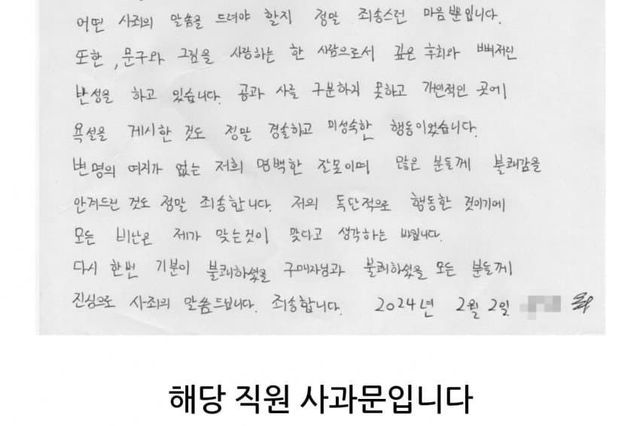 어떤 사죄의 말씀을 드려야 할지 정말 죄송스런 마음뿐입니다.
또한, 문구와 그림을 사랑하는 한 사람으로서 깊은 후회와 뼈저린
반성을 하고 있습니다. 공과 사를 구분하지 못하고 개인적인 곳에
욕설을 게시한 것도 정말 경솔하고 미성숙한 행동이었습니다.
변명의 여지가 없는 저희 명백한 잘못이며 많은 분들께 불쾌감을
안겨드린 것도 정말 죄송합니다. 저의 독단적으로 행동한 것이기에
모든 비난은 제가 맞는것이 맞다고 생각하는 바입니다.
다시 한번 기분이 불쾌하셨을 구매자님과 불쾌하셨을 모든 분들께
진심으로 사죄의 말씀드립니다. 죄송합니다. 2024년 2월 2일
해당 직원 사과문입니다